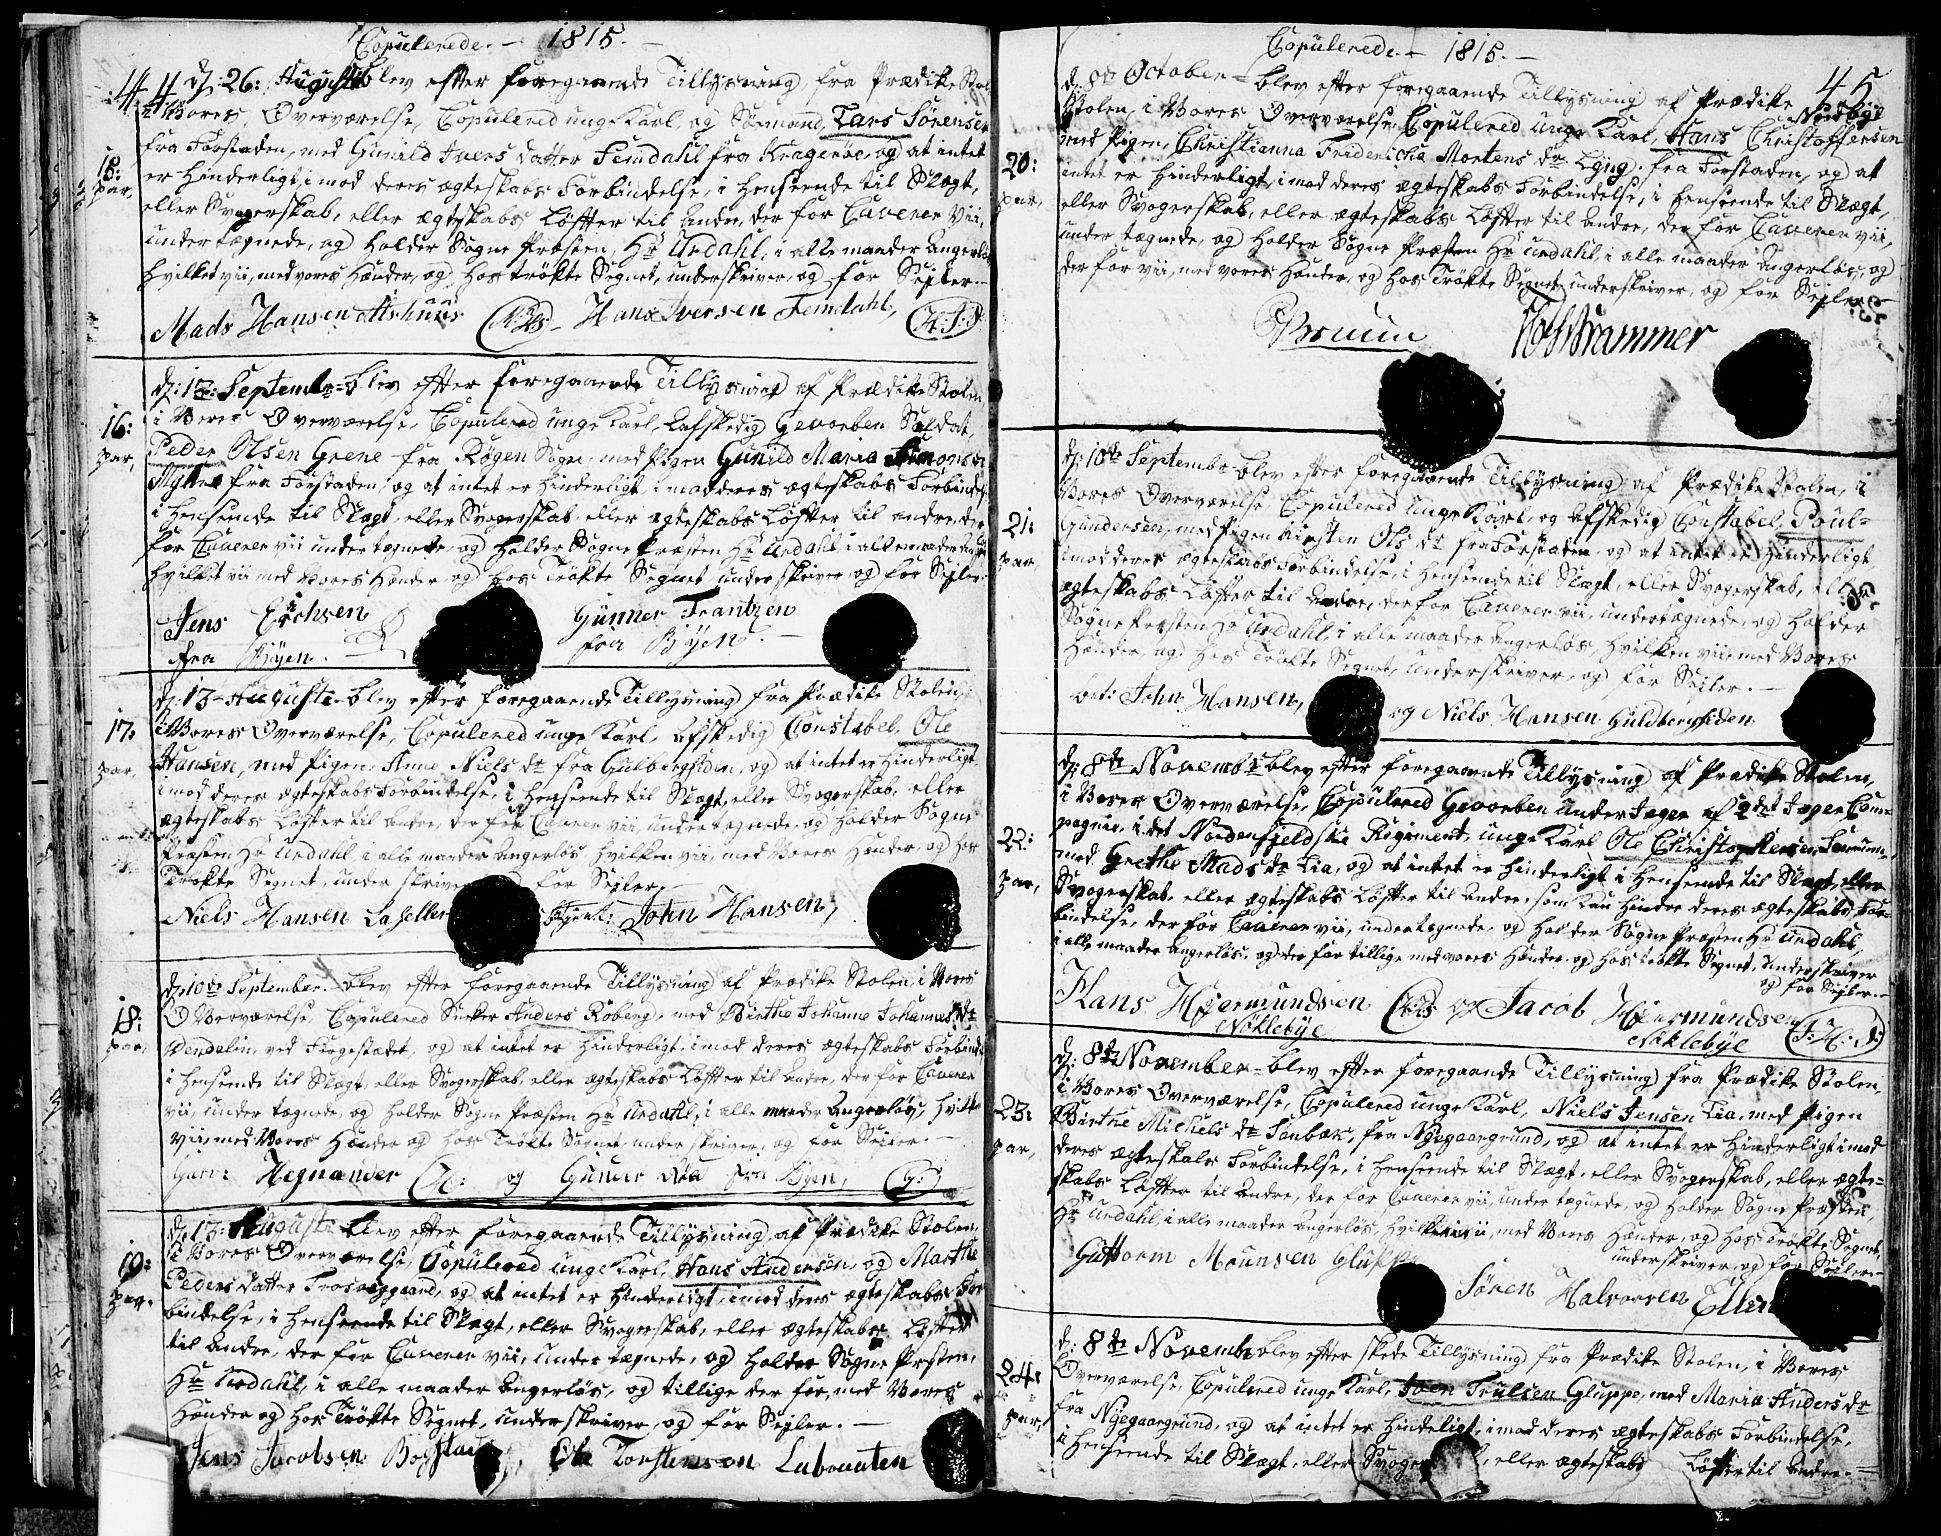 Copulerede. - 1815. -
44
15:
par,
d: 26: Augusti blev efter foregaaende Tillysning, fra Prædike Stol
i Vores Overværelse, Copulered unge Karl og Sømand, Lars Sørensen
fra Forstaden, med Gunild Ivers datter Femdahl fra Kragerøe, og at intet
er Hinderligt, i mod deres ægteskabs Forbindelse, i Henseende til Slægt,
eller Svogerskab, eller ægteskabs Løffter til andre, der for Caverer vii,
undertegnede, og holder Sogne Præsten, Hr Urdahl, i alle maader Angerløs
hvilket vii, med vores Hænder, og hos trøkte Segnet, underskriver, og for Sejler -
Mads Hansen Hans Iversen Femdahl,
16:
par,
d: 13: Septembr blev efter foregaaende Tillysning af Prædike Stolen
i Vores Overværelse, Copulered unge Karl, Afskedig Gevorben Soldat,
Peder Olsen Grene fra Røgen Sogn, med Pigen Gunild Maria Simons
fra Forstaden, og at intet er Hinderligt i mod deres ægteskabs Forbindel
i Henseende til Slægt, eller Svogerskab, eller ægteskabs Løfter til andre, der
for Caverer vii undertegnede, og holder Sogne Præsten Hr Urdahl i alle maader
hvilket vii med Vores Hænder og hos Trøkte Segnet under skriver og for Sejler
Jens Erichsen Gunner Frantzen
fra Byen. fra Byen. -
17:
par,
d: 13 - Augusti blev efter foregaaende Tillysning fra Prædike Stolen
i Vores Overværelse, Copulered unge Karl, afskedig Constabel, Ole
Hansen, med Pigen, Anne Niels dr fra Gulbergsiden, og at intet er Hinderligt
i mod deres ægteskabs Forbindelse, i Henseende til Slægt, eller Svogerskab, eller
ægteskabs Løfter til andre, der for Caverer vii, undertegnede, og holder Sogne
Præsten Hr Urdahl, i alle maader Angerløs, hvilken vii, med Vores Hænder, og hos
Trøkte Segnet, under skriver for Sejler. -
Niels Hansen John Hansen,
18:
par,
d: 10de September. - blev efter foregaaende Tillysning af Prædike Stolen, i Vores
Overværelse, Copulered Anders Roberg, med Birthe Johanne Johannes dr
Wendelin, ved og at intet er Hinderligt, i mod deres ægteskabs Forbindel
i Henseende til Slægt, eller Svogerskab, eller ægteskabs Løffter til andre, der for Caverer
vii, under tegnede, og holder Sogne Præsten Hr Urdahl, i alle maader Angerløs, hvilke
vii, med Vores Hænder og hos Trøkte Segnet, under skriver, og for Sejler. -
Hegnander og Gunder fra Byen,
19:
par.
d: 13: Augusti blev efter foregaaende Tillysning, af Prædike Stolen,
i Vores Overværelse, Copulered unge Karl, Hans Andersen, og Marthe
Peders datter og at intet er Hinderligt, i mod deres ægteskabs For
bindelse, i Henseende til Slægt, eller Svogerskab, eller ægteskabs Løfter
til andre, der for Caverer vii, undertegnede, og holder Sogne Præsten,
Hr Urdahl, i alle maader Angerløs, og tillige der for, med Vores
Hænder og hos Trøkte Segnet, underskriver, og for Sejler. -
Jens Jacobsen Ole Torstensen
Copulerede. - 1815. -
45
20:
par,
d: 8de October - blev efter foregaaende Tillysning af Prædike
Stolen, i Vores Overværelse, Copulered unge Karl, Hans Christoffersen
med Pigen, Christianna Fridericha Mortens dr fra Forstaden, og at
intet er Hinderligt, i mod deres ægteskabs Forbindelse, i Henseende til Slægt,
eller Svogerskab, eller ægteskabs Løfter til andre, der for Caverer vii,
under tegnede, og holder Sogne Præsten Hr Urdahl, i alle maader Angerløs, og
der for vii, med vores Hænder, og hos Trøkte Segnet underskriver, og for Sejler. -
Bruun
21:
par,
d: 10de Septembr blev efter foregaaende Tillysning af Prædike Stolen, i
Vores Overværelse Copulered unge Karl, og Afskedig Constabel, Poul=
Gundersen, med Pigen Kirsten Ols dr fra Forstaden, og at intet er Hinderligt
i mod deres ægteskabs Forbindelse, i Henseende til Slægt, eller Svogerskab, eller
ægteskabs Løfter til andre, der for Caverer vii, undertegnede, og holder
Sogne Præsten Hr Urdahl, i alle maader Angerløs, hvilken vii, med Vores
Hænder, og hos Trøkte Segnet, underskriver, og for Sejler. -
John Hansen, og Niels Hansen Guldbergsiden
22:
par,
d: 8de Novembr blev efter foregaaende Tillysning af Prædike Stolen,
i Vores Overværelse, Copulered Gevorben under Jæger af 2det Jæger Com=
pagnie, i det Nordenfjeldske Regiment, unge Karl Ole Christophersen
med Grethe Mads dr Lia, og at intet er hinderligt i Henseende til Slægt, eller
Svogerskab, eller ægteskabs Løfter til andre, som kan hindre deres ægteskabs For=
bindelse, der for Caverer vii, undertegnede, og holder Sogne Præsten Hr Urdahl,
i alle maader Angerløs, og der for tillige med vores Hænder og hos trøkte Segnet, underskriver
og for Sejler. -
Hans Hjermundsen og Jacob Hjermundsen
Nøklebye Nøklebye
23:
par,
d: 8de November - blev efter foregaaende Tillysning fra Prædike Stolen,
i Vores Overværelse, Copulered unge Karl, Niels Jensen Lia, med Pigen
Birthe Michels dr fra Nyegaargrund, og at intet er Hinderligt i mod
deres ægteskabs Forbindelse, i Henseende til Slægt, eller Svogerskab, eller ægte=
skabs Løfter til andre, der for Caverer vii, under tegnede, og holder Sogne Præsten,
Hr Urdahl, i alle maader Angerløs, hvilken vii, med Vores Hænder, og hos Trøkte Segnet,
underskriver, og for Sejler -
Guttorm Mounsen Gluppe
Søren Halvorsen
24:
par,
d: 8de Novembr blev efter skede Tillysning fra Prædike Stolen, i Vores
Overværelse, Copulered unge Karl, Iver Trulsen Gluppe, med Maria Anders dr
fra Nyegaargrund, og at intet er Hinderligt, i mod deres ægteskabs Forbindelse,
i Henseende til Slægt, eller eller ægteskabs Løfter til andre. -